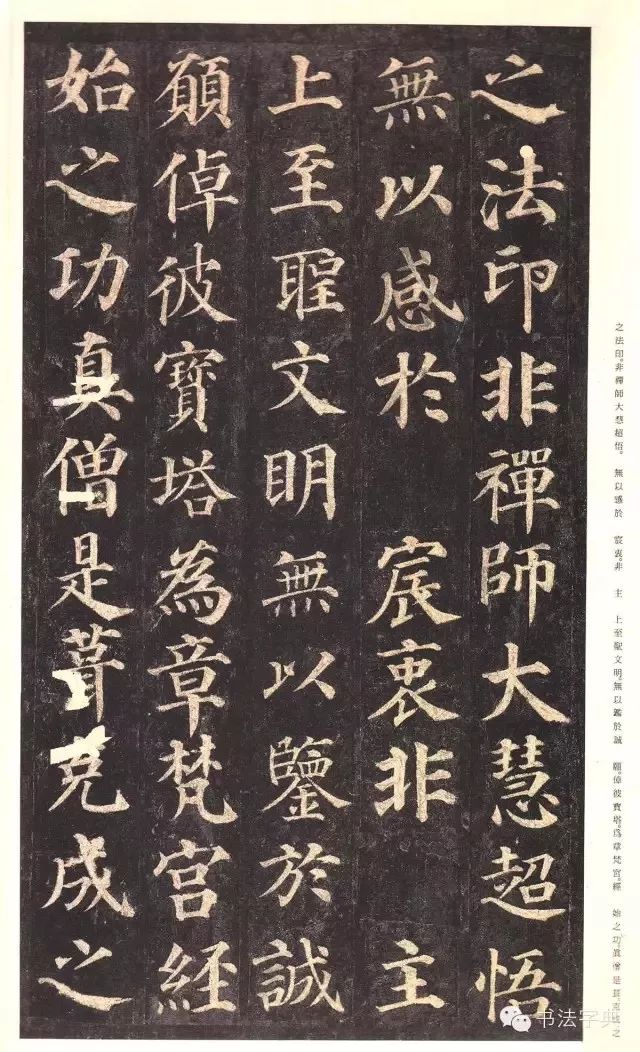 之法印非禪師大慧超悟
無以感於 宸衷非 主
上至聖文明無以鑒於誠
願倬彼寶塔為章梵宮経
始之功真僧是葺克成之
之法印。非禪師大慧超悟。 無以感於 宸衷。非 主 上至聖文明。無以鑑於誠 願。倬彼寶塔。為章梵宮。經 始之功。真僧是葺。克成之
书法字典